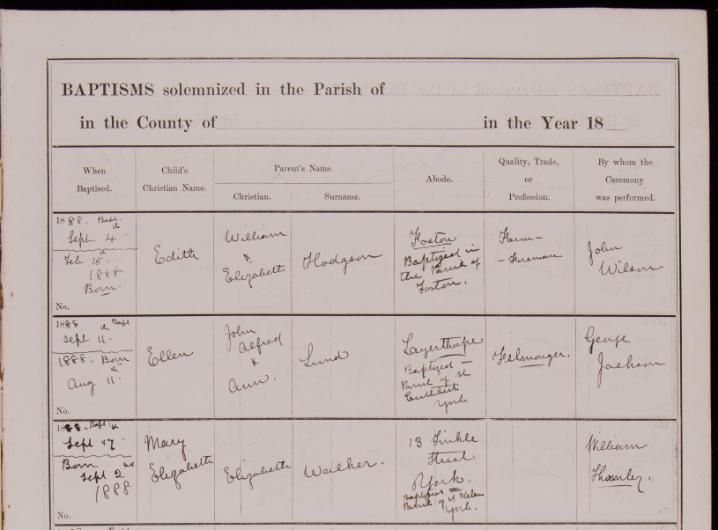 BAPTISMS solemnized in the Parish of
in the County of in the Year 18
When Baptised.
Child's Christian Name.
Parent's Name.
Christian.
Surname.
Abode.
Quality, Trade, or Profession.
By whom the Ceremony was performed.
1888. Bapt.
Sept 4th
Feb 15th
1888
Born.
No.
Edith
William
&
Elizabeth
Hodgson
Foston
Baptized in
the Parish of
Foston.
Farm-
-Foreman
John
Wilson
1888 Bapt
Sept 11th
1888. Born
Aug 11th
No.
Ellen
John
Alfred
&
Ann.
Lund
Layerthorpe
Baptized in
Parish of St
Cuthbert
York
Fellmonger.
George
Jackson
1888. Bapt
Sept 17th
Born
Sept 2nd
1888
No.
Mary
Elizabeth
Elizabeth
Walker.
13 Finkle
Street
York.
Baptized in
Parish of St Helen
York.
William
Thornley.